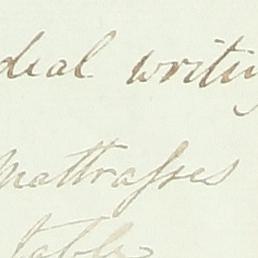 deal writin
Mattrasses
table